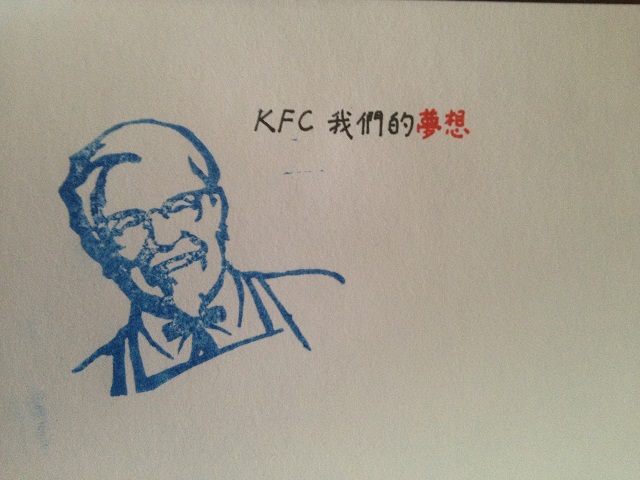 KFC 我們的夢想